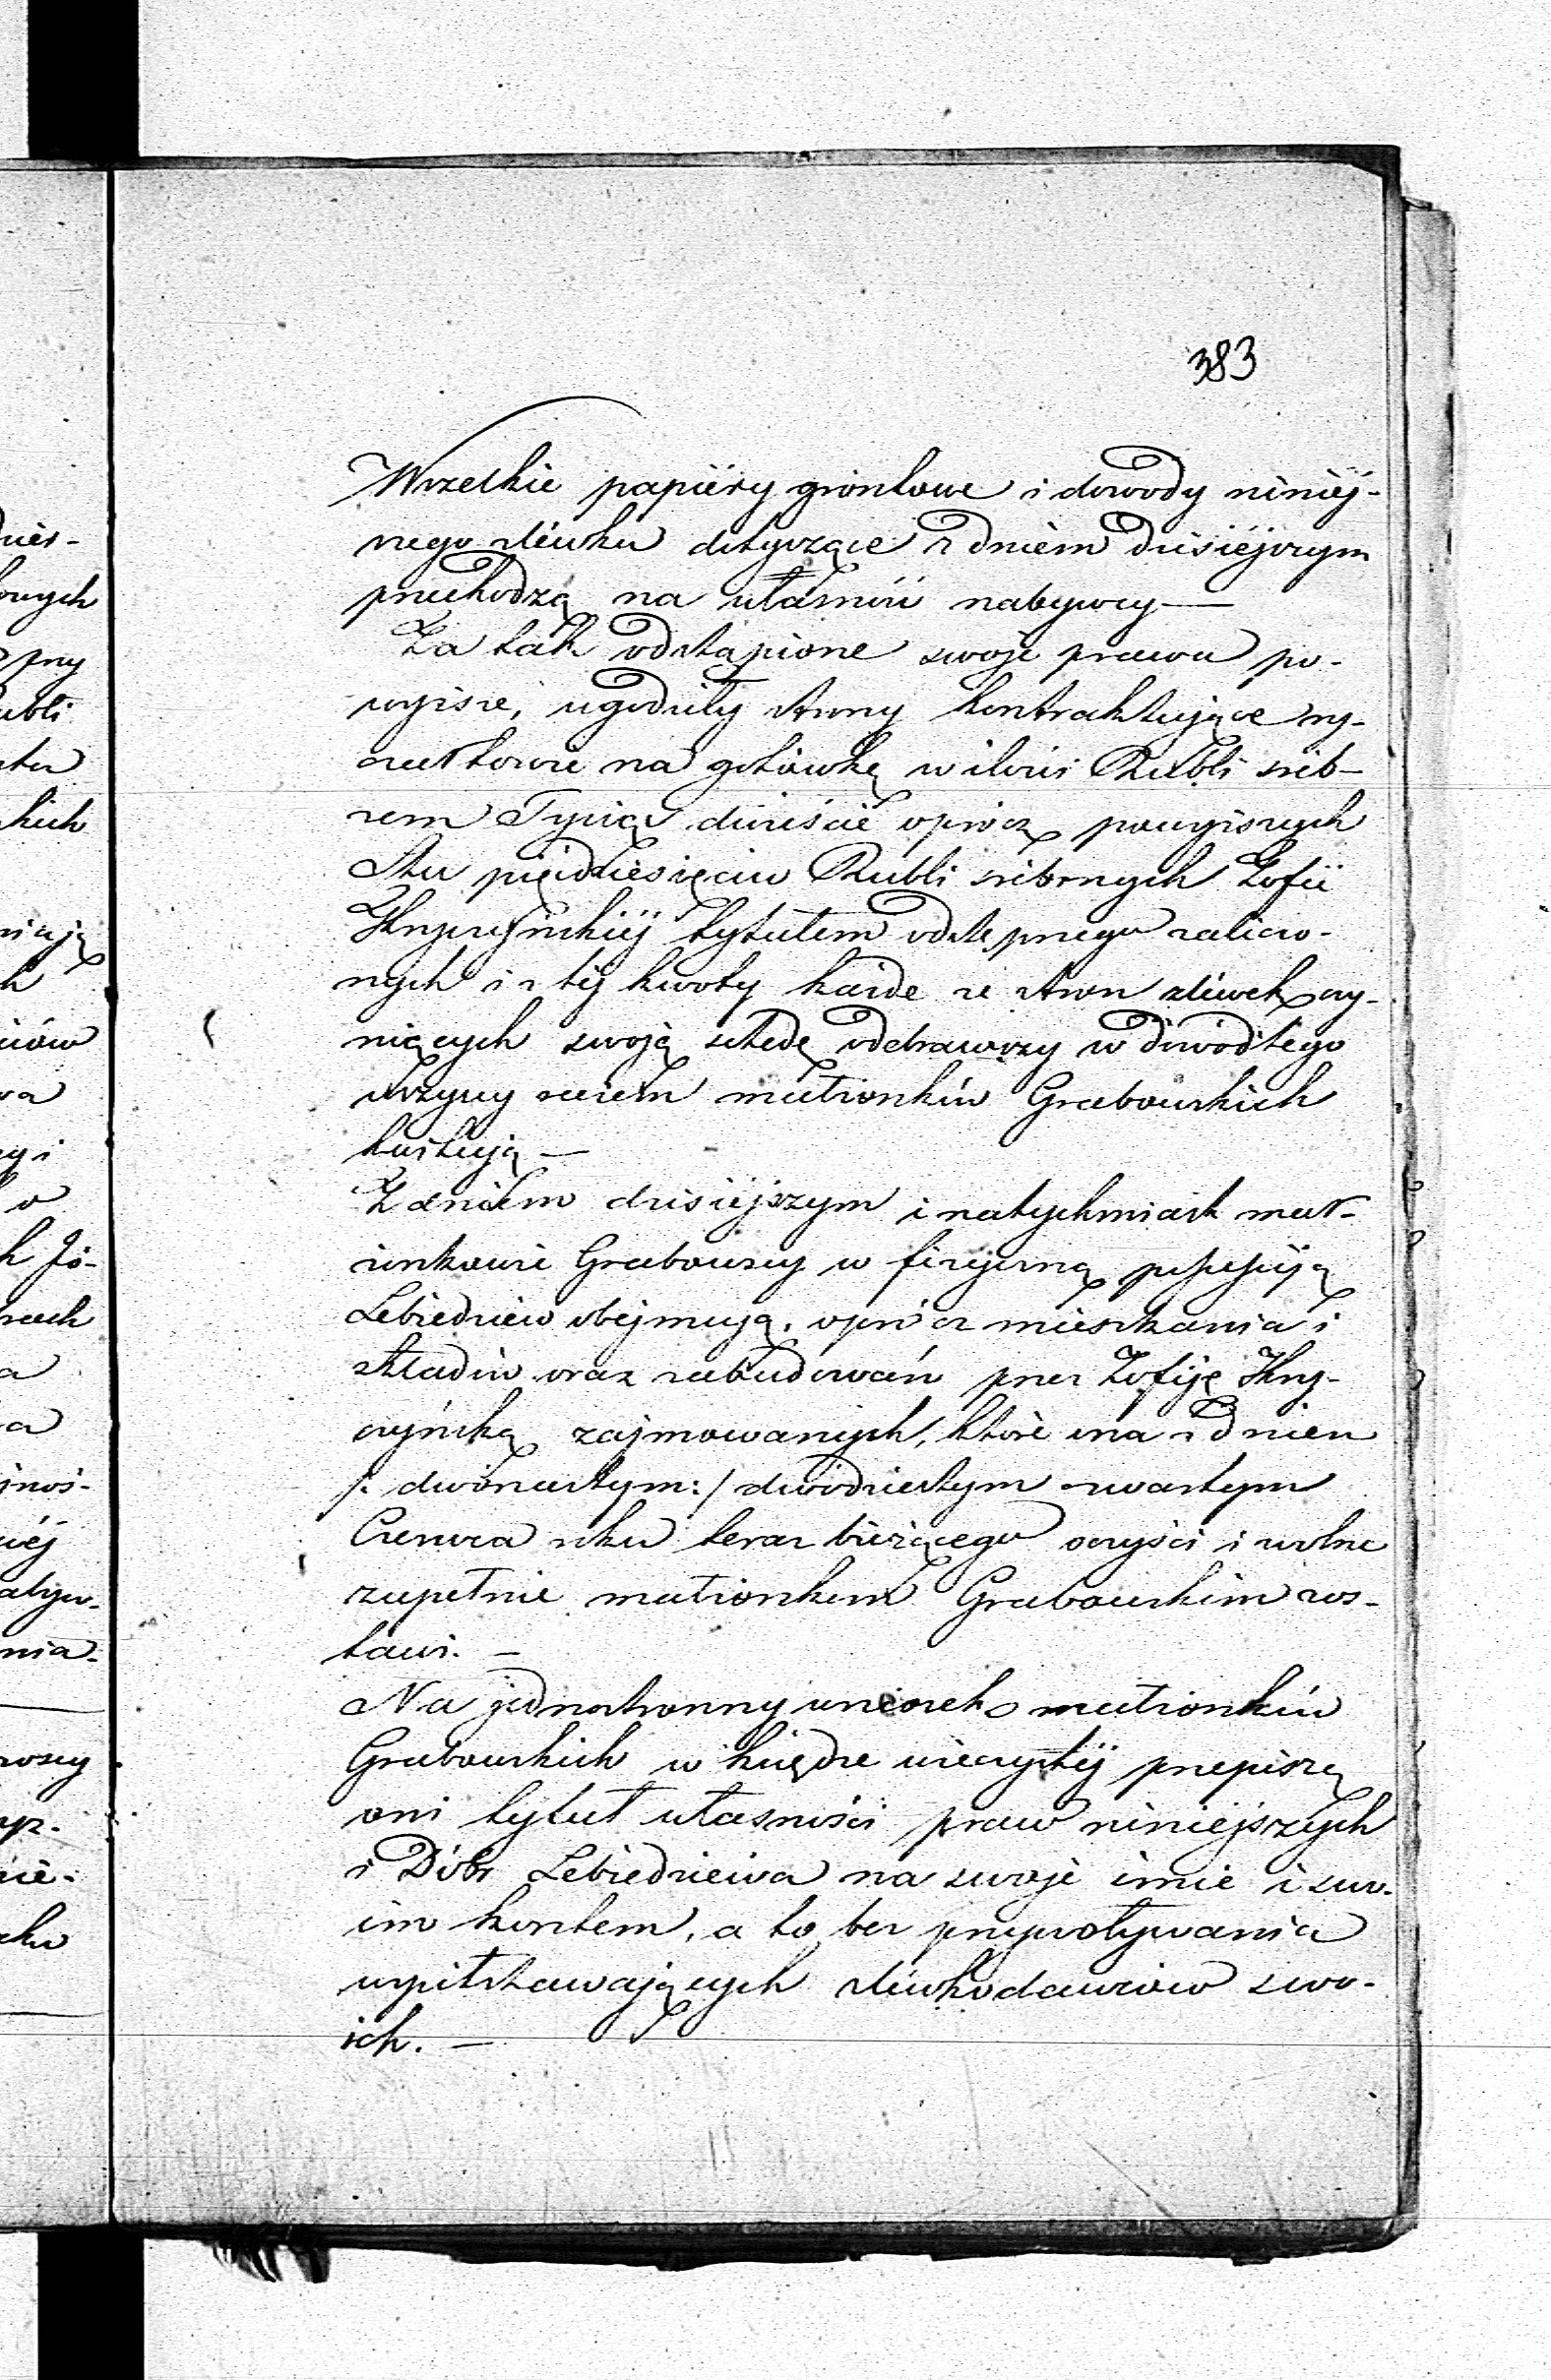 383
Wszelkie papiéry grontowe i dowody niniéj-
szego zlewku dotyczące z dniem dzisiéjszym
przechodzą na własność nabywcy —
Za tak odstąpione swoje prawa po-
wyższe, ugodziły strony kontraktujące ry-
czałtowie na gotówkę w ilości Rubli sreb-
rem Tysiąc dwieście oprócz powyższych
Stu pięćdziesięciu Rubli srebrnych Zofii
Skrzyczyńskiéj tytułem odstępnego zaliczo-
nych i z téj kwoty każde ze stron zlewek czy-
niących swoją schedę odebrawszy w dowód tego
wszyscy razem małżonków Grabowskich
kwitują —
Z dniem dzisiéjszym i natychmiast mał-
żonkowie Grabowscy w fizyczną possessiją
Lebiedziew obejmują, oprócz mieszkania i
składów oraz zabudowań przez Zofiję Skrzy-
czyńską zajmowanych, które ona z dniem
/: dwónastym :/ dwódziestym czwartym
Czerwca roku teraz bieżącego oczyści i wolne
zupełnie małżonkom Grabowskim zos-
tawi. —
Na jednostronny wniosek małżonków
Grabowskich w księdze wieczystéj przepiszą
oni tytuł własności praw niniejszych
i Dóbr Lebiedziewa na swoje imie i swo-
im kosztem, a to bez przywoływania
współstawających zlewkodawców swo-
ich. —